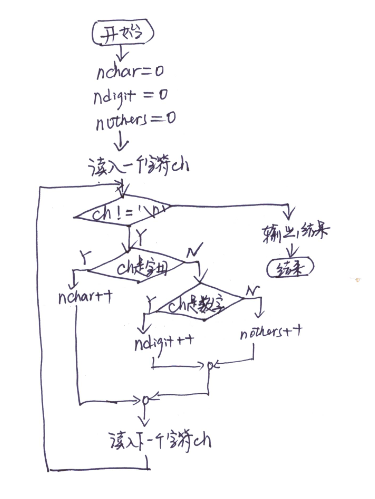 开始
nchar=0
ndigit=0
nothers=0
读入一个字符ch
ch!='\n'
Y
输出结果
Y
ch是字母
N
结果
nchar++
Y
ch是数字
N
ndigit++
nothers++
读入下一个字符ch